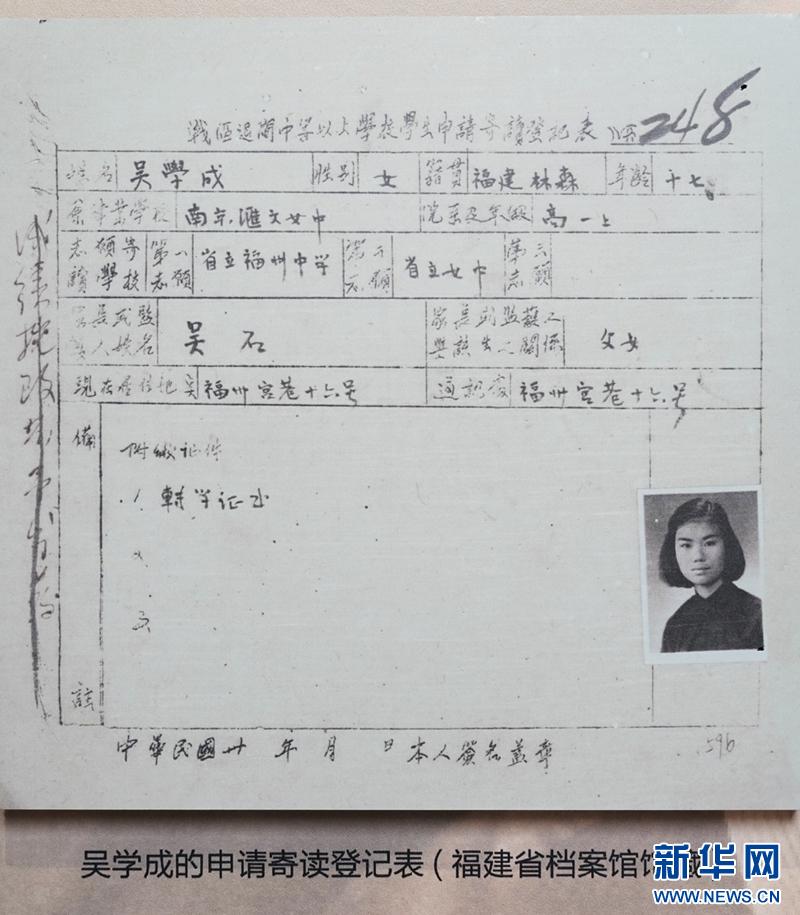 戰區退閩中等以上學校學生申請寄讀登記表 248
姓名 吴學成 性别 女 籍貫 福建林森 年齡 十七
原肄業學校 南京滙文女中 院系及年級 高一上
志願寄讀學校 第一志願 省立福州中学 第二志願 省立女中 第三志願
家長或監護人姓名 吴石 家長或監護人與該生之關係 父女
現在居住地 福州宫巷十六号 通訊處 福州宫巷十六号
備註
附缴证件
1 轉学证书
2
3
中華民國卅 年 月 日 本人簽名蓋章
596
吴学成的申请寄读登记表（福建省档案馆馆藏
新华网
WWW.NEWS.CN